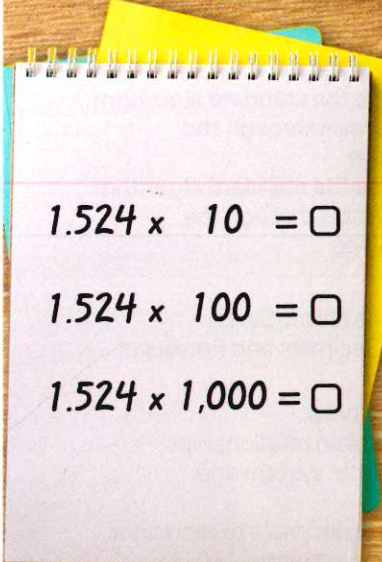 1.524 x 10 = □
1.524 x 100 = □
1.524 x 1,000 = □